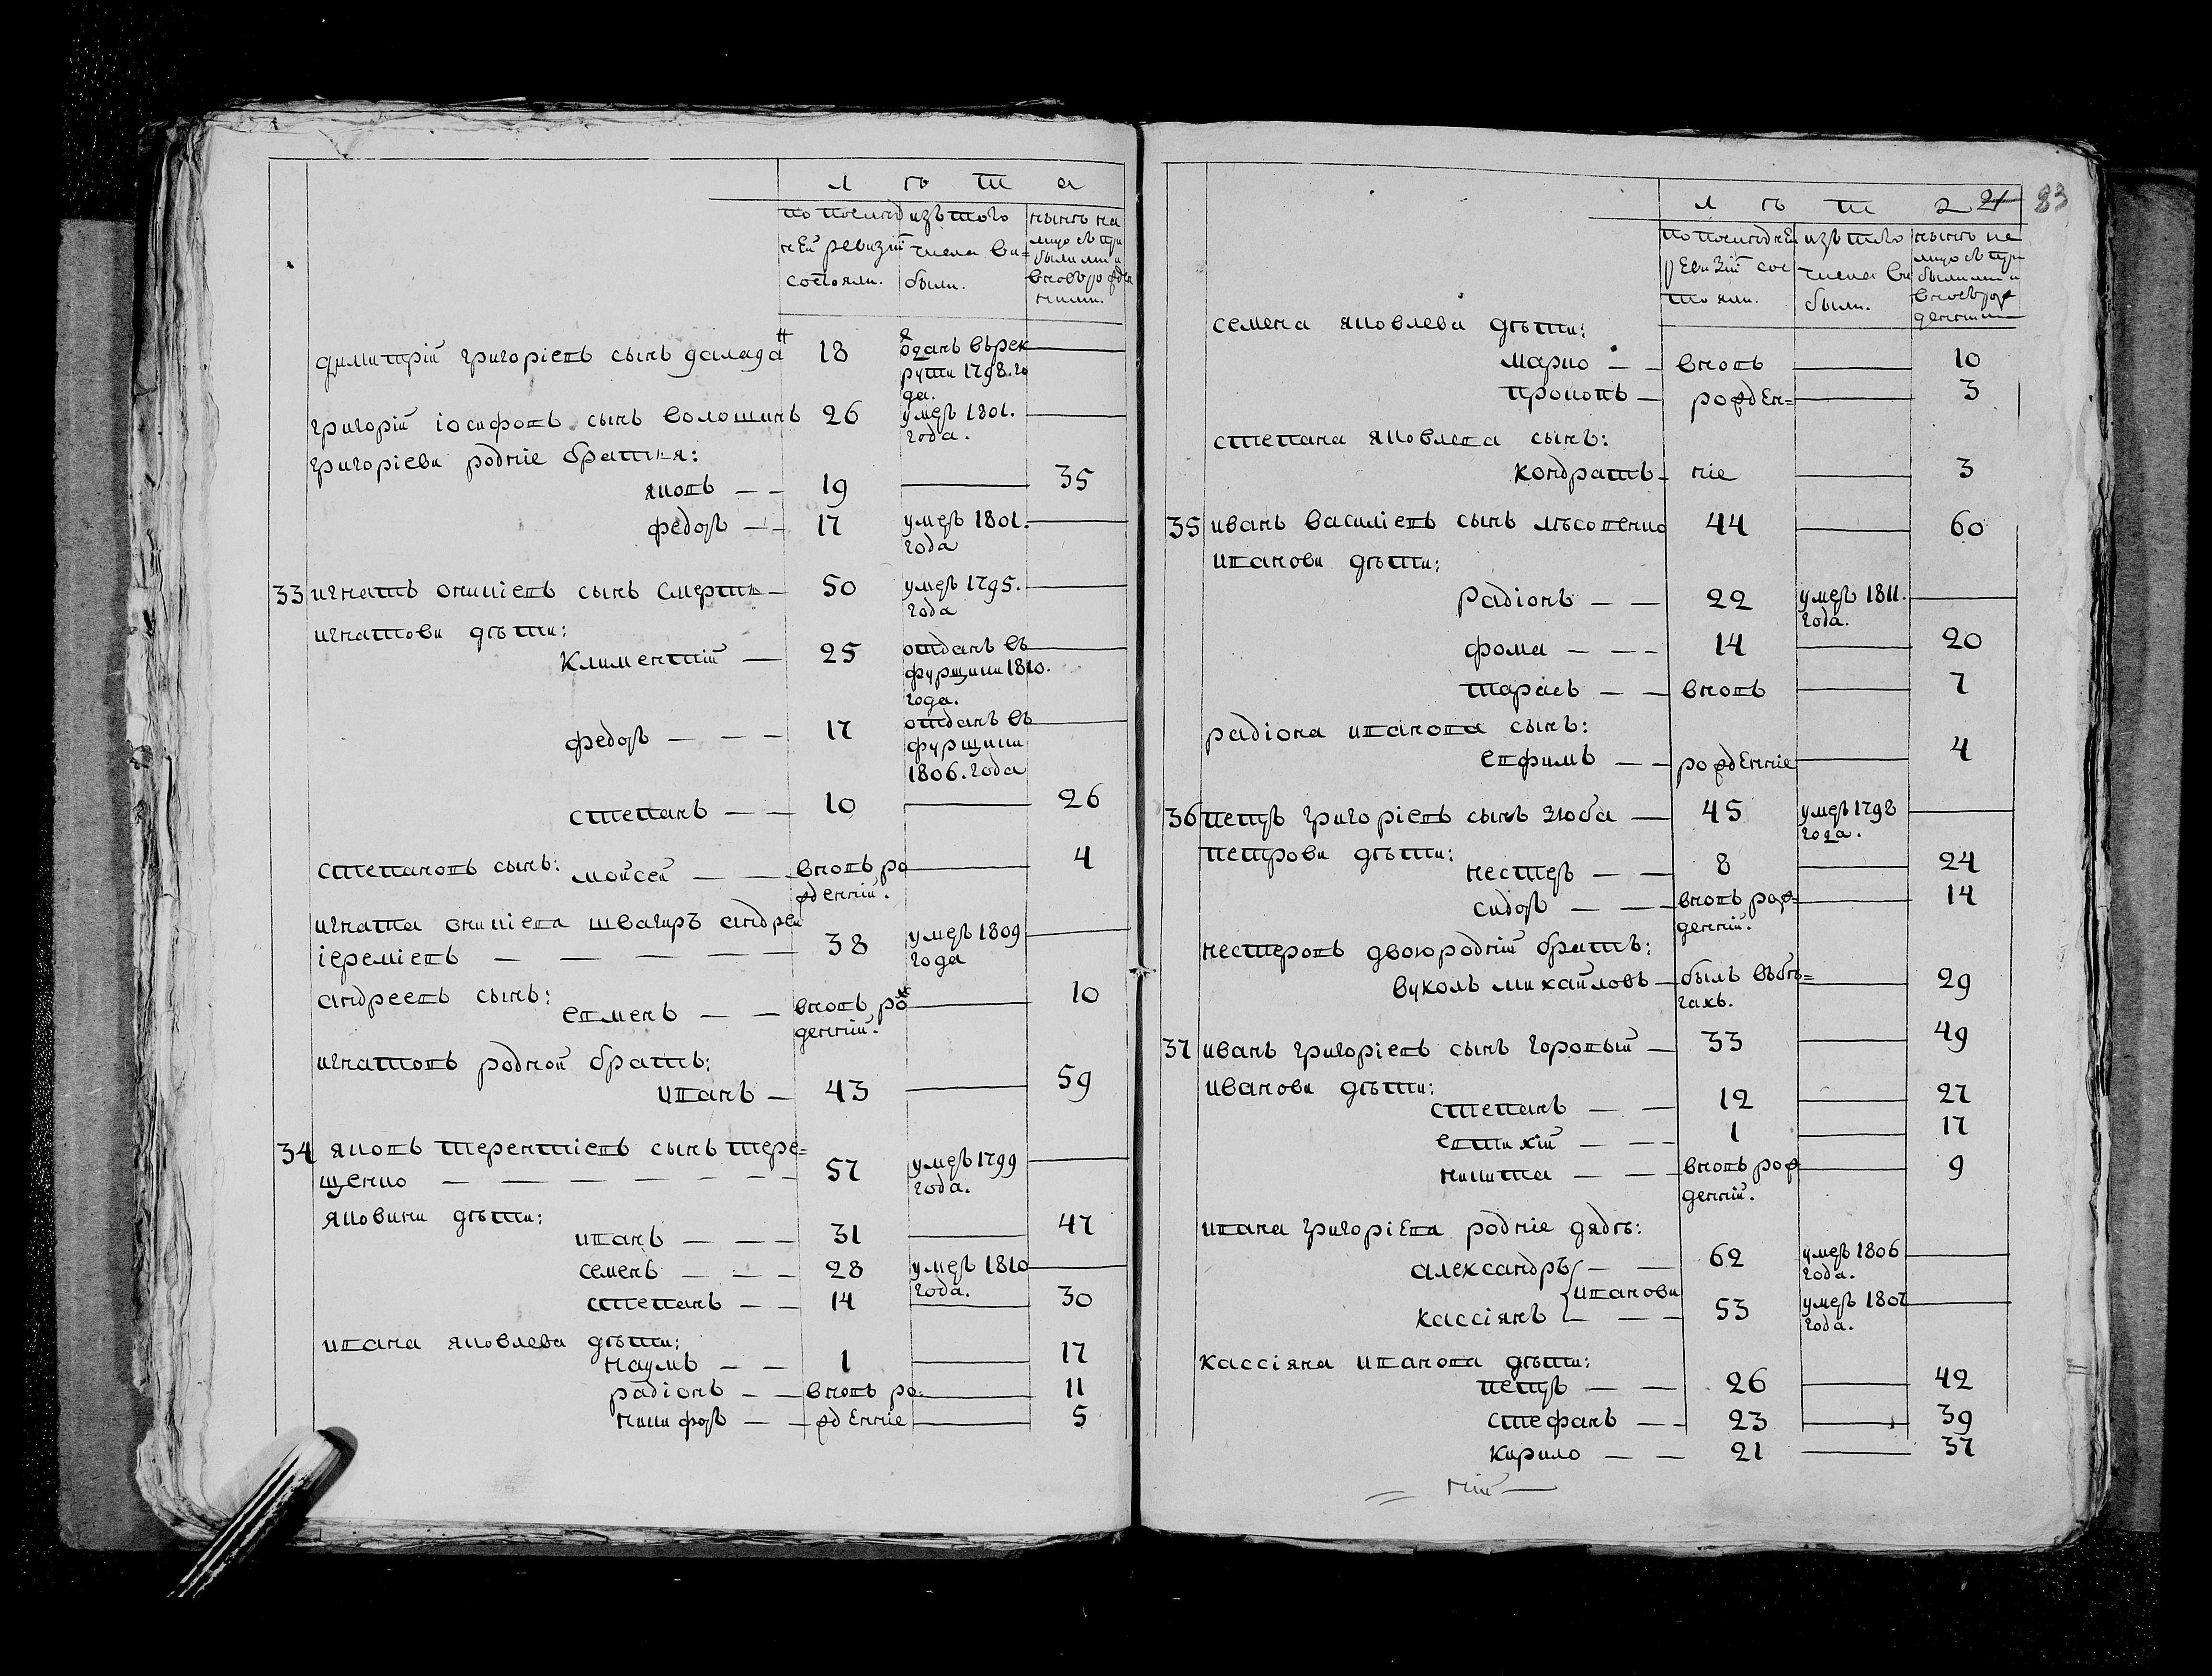 лѣта
по последней ревизіи состояли.
изъ того числа выбыли.
нынѣ на лицо съ прибылыми и вновь рожденными.
димитрій григоріевъ сынъ далада 18 ѿданъ върек
руты 1798. го
да.
григорій іосифовъ сынъ волошинъ 26 умеръ 1801.
года.
григоріеви родніе братья:
яковъ — — 19 35
федоръ — — 17 умеръ 1801.
года
33 игнатъ оникіевъ сынъ смерть — 50 умеръ 1795.
года
игнатови дѣти:
климентій — 25 отданъ въ
фурщики 1810.
года.
федоръ — — — 17 отданъ въ
фурщики
1806. года
степанъ — — 10 26
степановъ сынъ: мойсей — — вновь ро 4
жденній.
игната оникіева швагиръ андрей
іереміевъ — — — — — 38 умеръ 1809
года
андреевъ сынъ: евменъ — — вновь рож 10
денній.
игнатовъ родной братъ:
иванъ — 43 59
34 яковъ терентіевъ сынъ тере=
щенко — — — — — — — 57 умеръ 1799
года.
яковини дѣти:
иванъ — — — 31 47
семенъ — — — 28 умеръ 1810
года.
степанъ — — 14 30
ивана яковлева дѣти:
наумъ — — 1 17
радіонъ — — вновь ро 11
никифоръ — — жденніе 5
21 83
лѣта
по последней ревизіи состояли.
изъ того числа выбыли.
нынѣ на лицо съ прибылыми и вновь рожденными
семена яковлева дѣти:
марко — — вновь 10
прокопъ — рожден= 3
степана яковлева сынъ:
кондратъ — ніе 3
35 иванъ василіевъ сынъ лѣсовенко 44 60
иванови дѣти:
радіонъ — — 22 умеръ 1811.
года.
фома — — — 14 20
тарасъ — — вновь 7
радіона иванова сынъ:
евфимъ — — рожденніе 4
36 петръ григоріевъ сынъ зюба — 45 умеръ 1798
года.
петрови дѣти:
нестеръ — — 8 24
сидоръ — — вновь рож= 14
денній.
нестеровъ двоюродній братъ:
вуколъ михайловъ — былъ въбѣ= 29
гахъ.
37 иванъ григоріевъ сынъ горовый — 33 49
иванови дѣти:
степанъ — — 12 27
евтихій — — — 1 17
никита — — вновь рож 9
денній.
ивана григоріева родніе дядѣ:
александръ — — 62 умеръ 1806
года.
ивановы
кассіянъ — — — 53 умеръ 1807
года.
кассіяна иванова дѣти:
петръ — — 26 42
стефанъ — — 23 39
кирило — — 21 37
ній